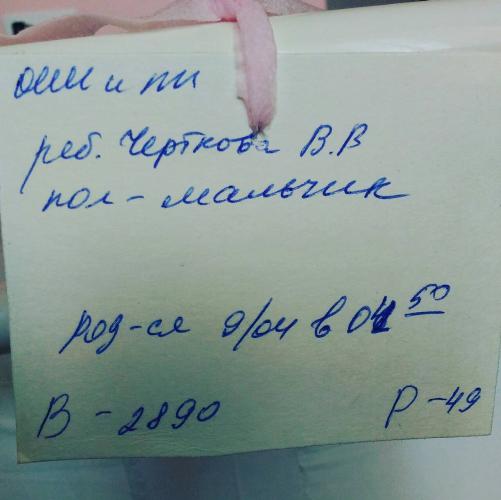 ОНН и ПН
реб. Черткова В.В
пол - мальчик
род-ся 9/04 в 04 50
В - 2890
Р - 49